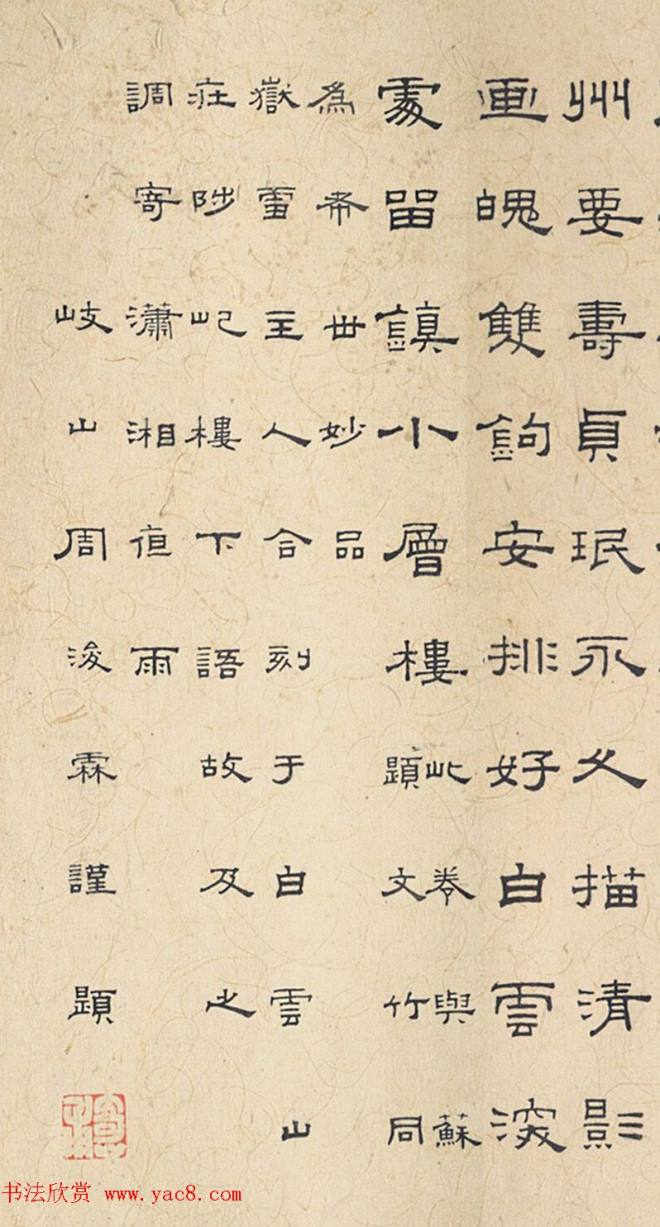 州要壽貞珉永久描清影
画魄雙鉤安排好白雲深
處留鎮小層樓
此卷與蘇
題文竹同
為希世妙品
嶽雪主人合刻于白雲山
莊陟屺樓下語故及之
調寄瀟湘夜雨
岐山周浚霖謹題
书法欣赏 www.yac8.com